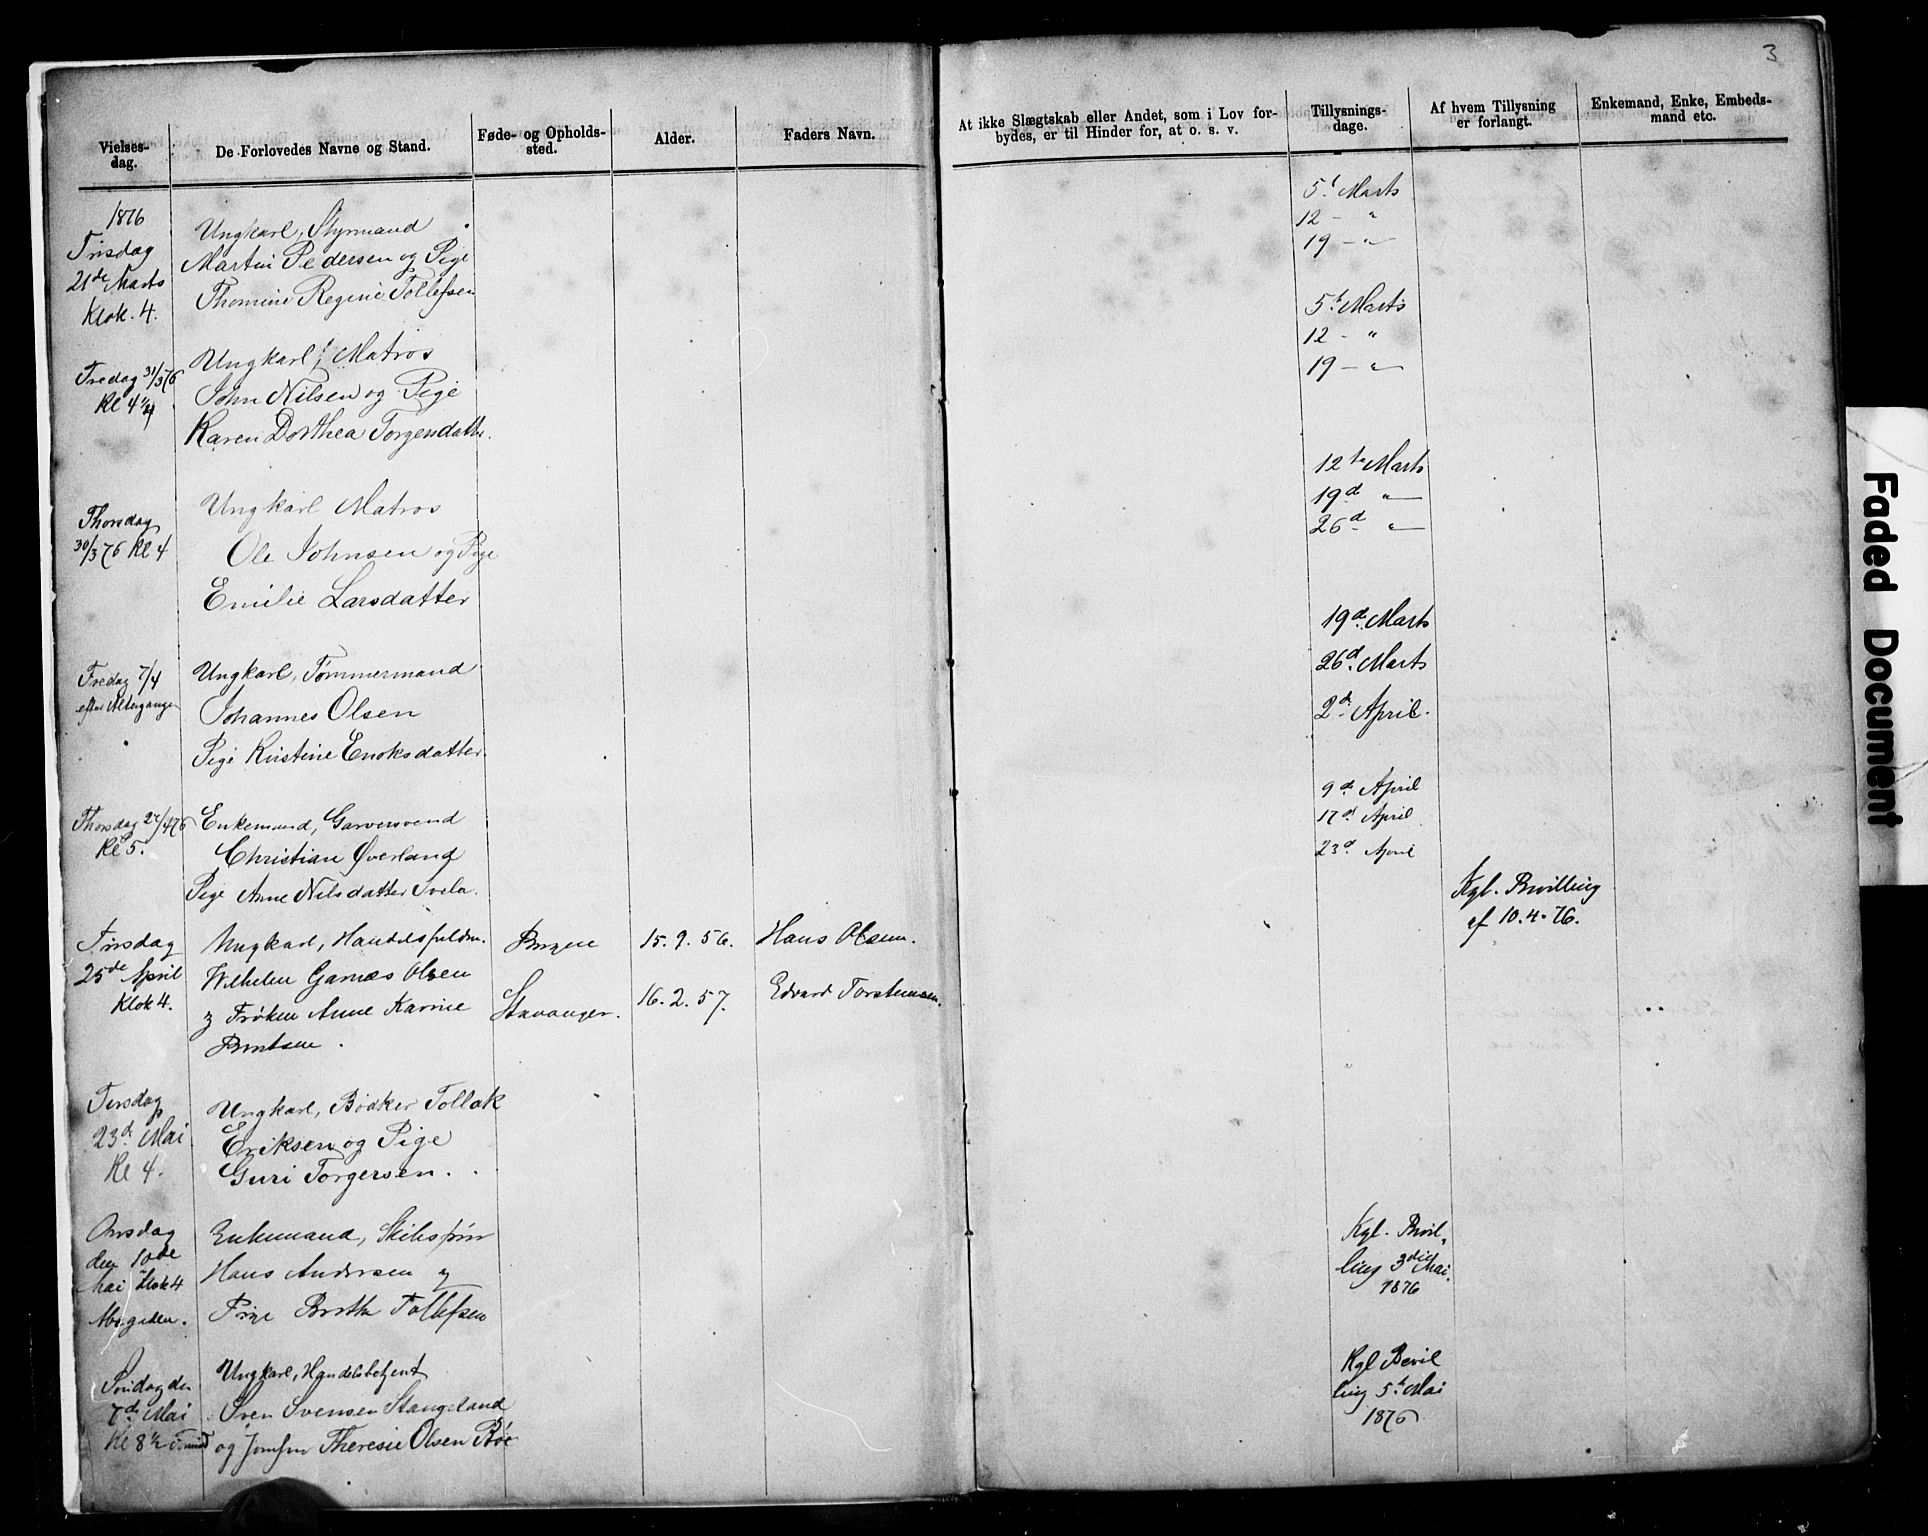 3
Vielses-
dag.
De Forlovedes Navne og Stand.
Føde- og Opholds-
sted.
Alder.
Faders Navn.
At ikke Slægtskab eller Andet, som i Lov for-
bydes, er til Hinder for, at o. s. v.
Tillysnings-
dage.
Af hvem Tillysning
er forlangt.
Enkemand, Enke, Embeds-
mand etc.
1876
Tirsdag
21de Marts
Klok. 4.
Ungkarl, Styrmand
Martin Pedersen og Pige
Thomine Regine Tollefsen
5t Marts
12 - "
19 - "
Fredag 31/3 76
Kl 4 1/4
Ungkarl, Matros
John Nilsen og Pige
Karen Dorthea Torgersdatter.
5t Marts
12 - "
19 - "
Thorsdag
30/3 76 Kl 4
Ungkarl Matros
Ole Johnsen og Pige
Emilie Larsdatter
12te Marts
19d "
26d "
Fredag 7/4
efter Altergangen
Ungkarl, Tømmermand
Johannes Olsen
Pige Kirstine Enoksdatter.
19d. Marts
26d. Marts
2d. April.
Thorsdag 27/4 76
Kl 5.
Enkemand, Garversvend
Christian Øverland
Pige Anne Nilsdatter
9d. April
17d. April
23d. April
Tirsdag
25de April
Klok 4.
Ungkarl, Handelsfuldm.
Wilhelm Garnæs Olsen
og Frøken Anne Karine
Berntsen.
Bergen
Stavanger.
15. 9. 56.
16. 2. 57.
Hans Olsen.
Edvard Torstensen.
Kgl. Bevilling
af 10.4.76.
Tirsdag
23d. Mai
Kl 4.
Ungkarl, Bødker Tollak
Eriksen og Pige
Guri Torgersen.
Onsdag
den 10de
Mai Klok 4
Enkemand,
Hans Andersen og
Pige Berthe Tollefsen
Kgl. Bevil-
ling 3die Mai.
1876
Søndag den
7d. Mai
Kl 8 1/2 Formid
Ungkarl, Handelsbetjent
Sven Svensen Stangeland
og Jomfru Theresie Olsen Bøe
Kgl Bevil
ling 5t. Mai
1876
Faded Document